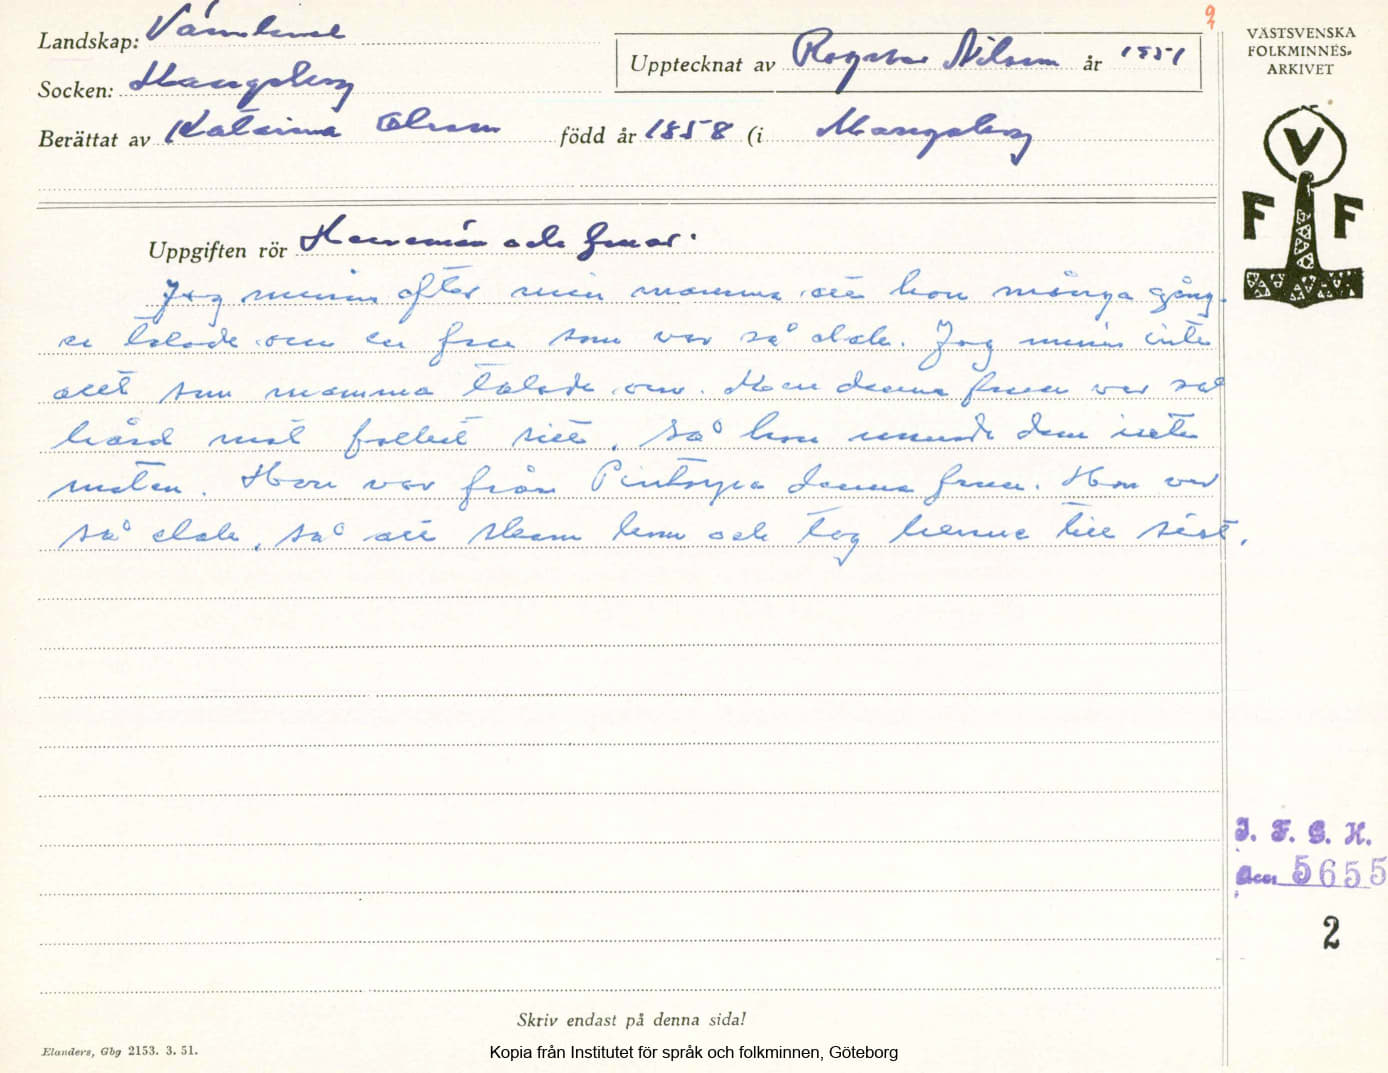 9
VÄSTSVENSKA
FOLKMINNES-
ARKIVET
V
F F
Landskap: Värmland
Upptecknat av Ragnar Nilsson år 1951
Socken: Mangskog
Berättat av Katarina Olsson född år 1858 (i Mangskog
Uppgiften rör Herremän och fruar.
Jag minns efter min mamma att hon många gång-
er talade om en fru som var så elak. Jag minns inte
allt som mamma talade om. Men denna frun var så
hård mot folket sitt, så hon unnade dem inte
maten. Hon var från denna frun. Hon var
så elak, så att skam kom och tog henne till sist.
I. F. G. H.
Acc. 5655
2
Skriv endast på denna sida!
Elanders, Gbg 2153. 3. 51.
Kopia från Institutet för språk och folkminnen, Göteborg